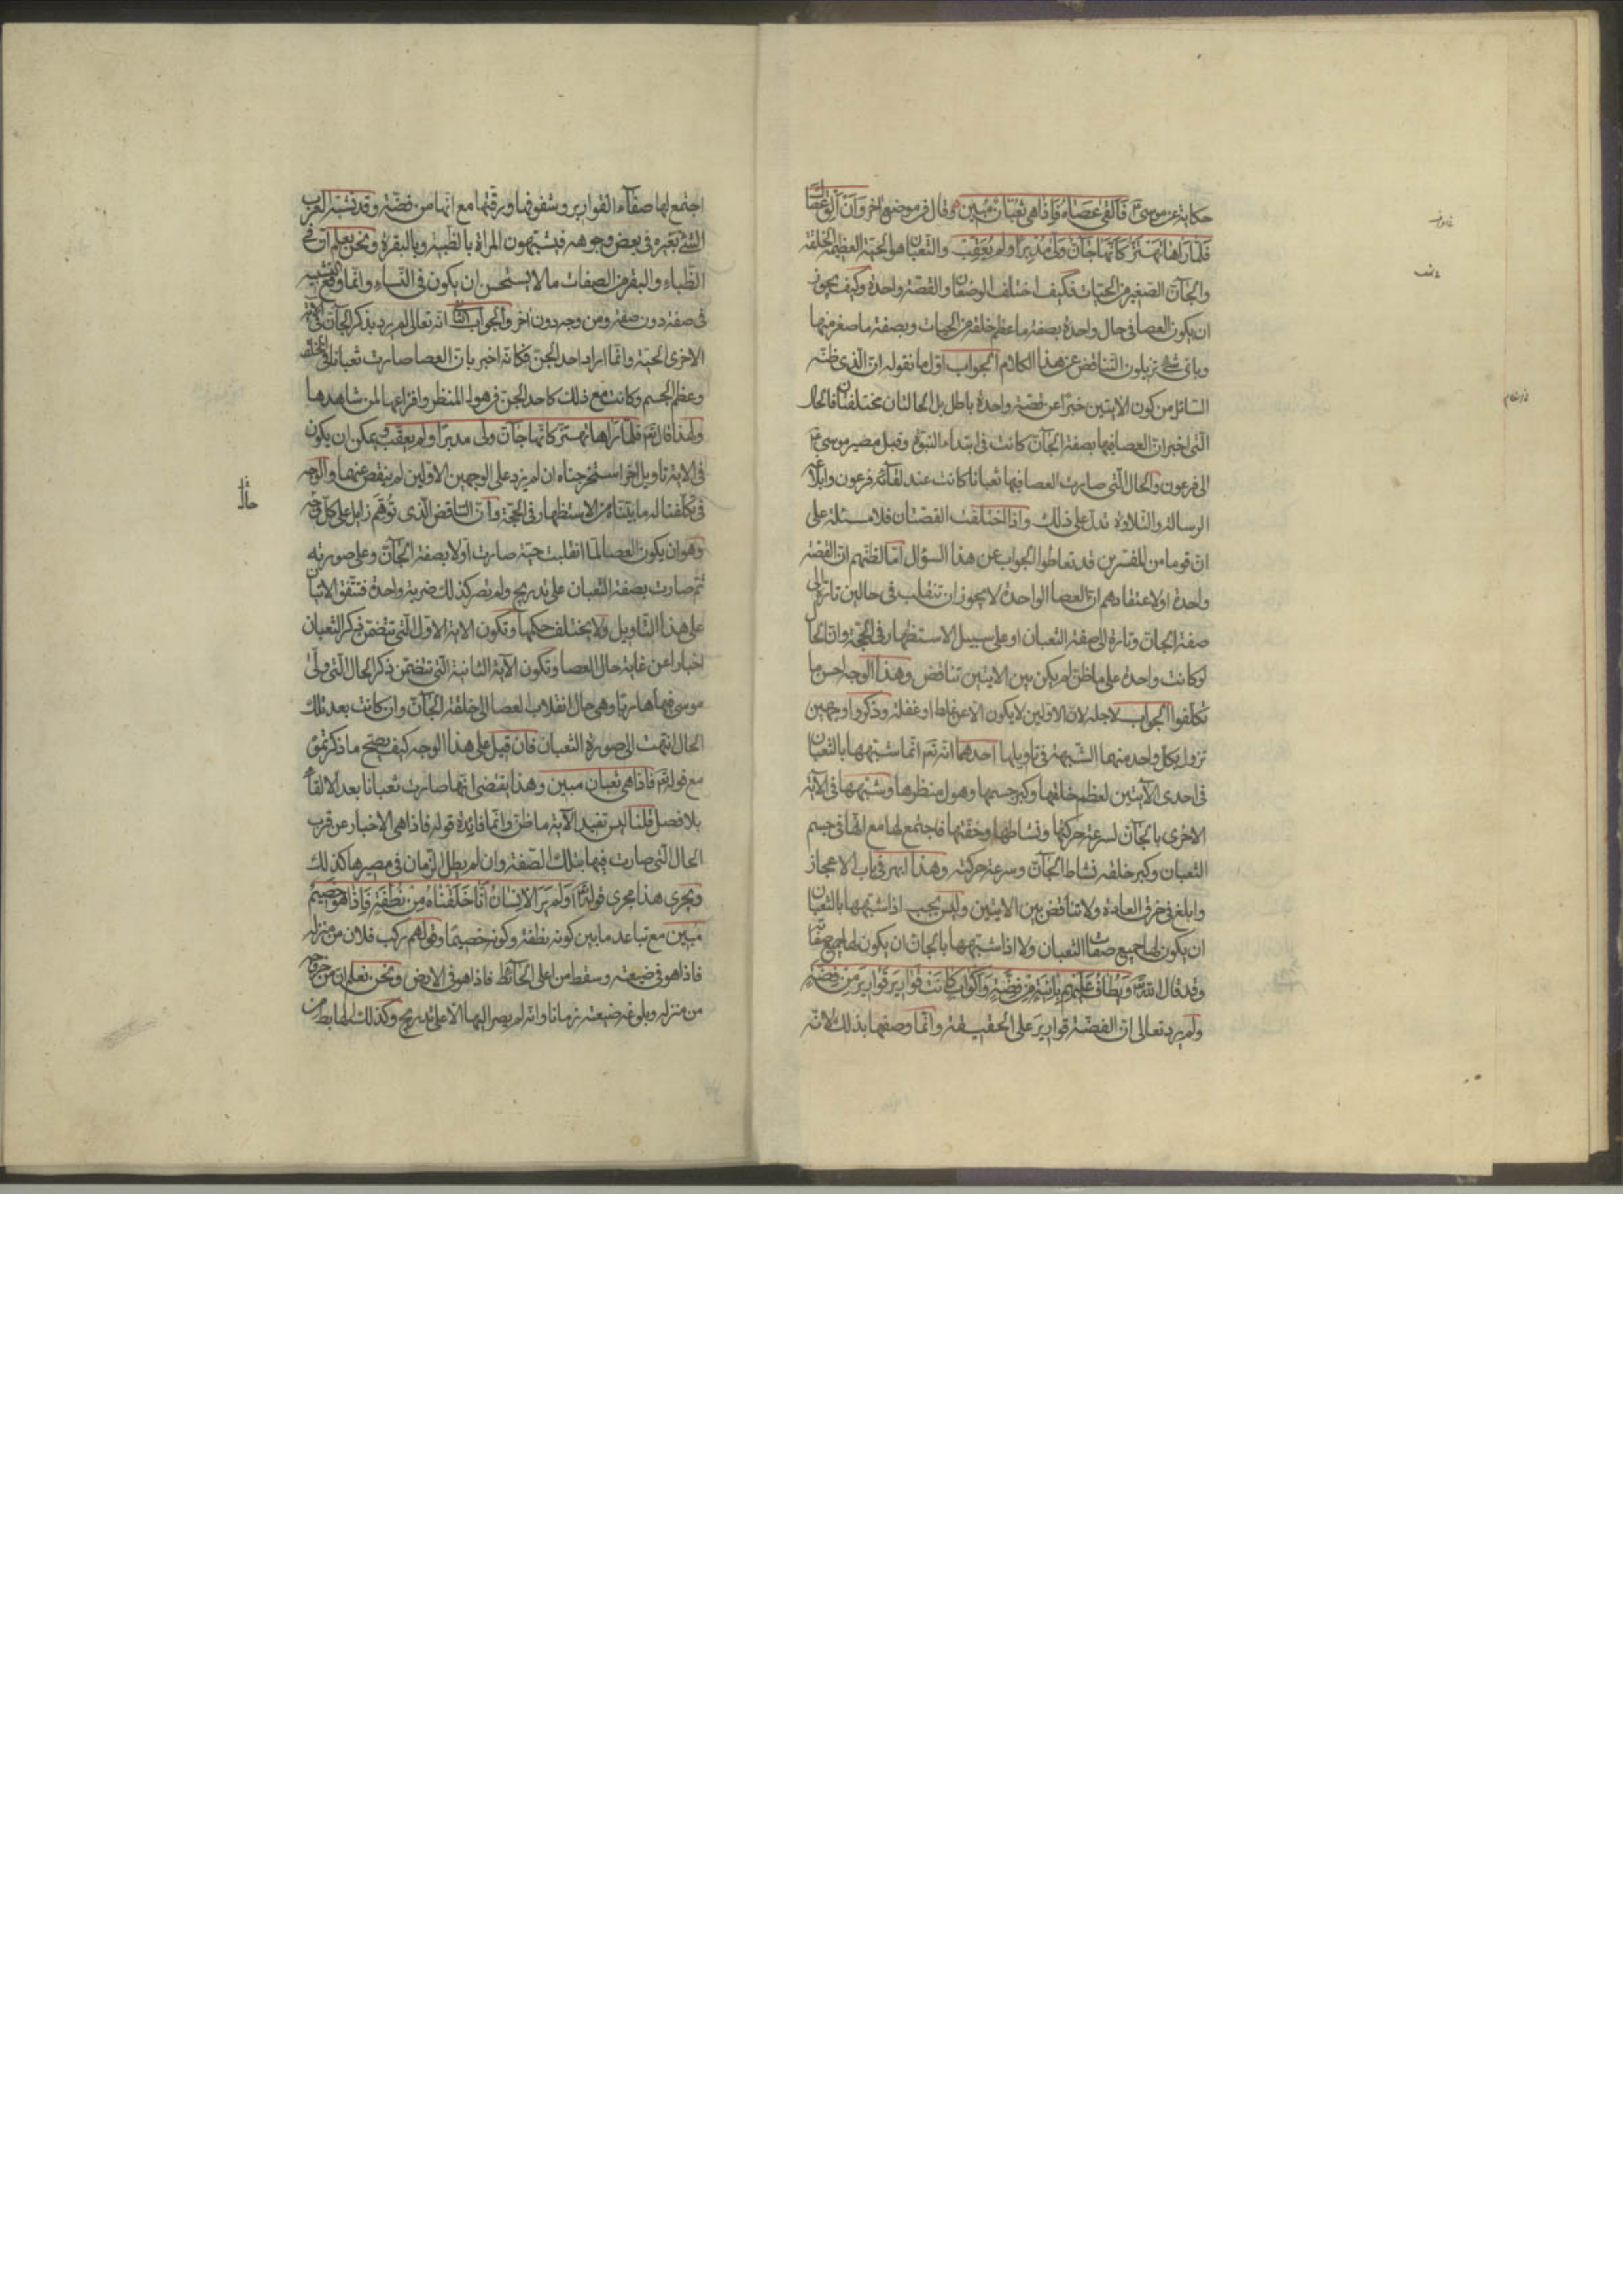 حكاية عن موسى فالقى عصاه فاذا هى ثعبان مبين وقال فى موضع اخر وان الق عصاك
فلما راها تهتز كانها جان ولى مدبرا ولم يعقب والثعبان هو الحية العظيمة الخلقة
والجان الصغير من الحيات فكيف اختلف الوصفان والقصة واحدة وكيف يجوز
ان يكون العصا فى حال واحدة بصفة ما عظم خلقه من الحيات وبصفة ما صغر منها
وباى شئ تزيلون التناقض عن هذا الكلام الجواب اول ما نقوله ان الذى ظنه
السائل من كون الايتين خبرا عن قصة واحدة باطل بل الحالتان مختلفتان فالحال
التى اخبر ان العصا فيها بصفة الجان كانت فى ابتداء النبوة وقبل مصير موسى
الى فرعون والحال التى صارت العصا فيها ثعبانا كانت عند لقائه فرعون وابلاغه
الرسالة والتلاوة تدل على ذلك واذا اختلفت القصتان فلا مسئلة على
ان قوما من المفسرين قد تعاطوا الجواب عن هذا السؤال اما لظنهم ان القصة
واحدة او لاعتقادهم ان العصا الواحدة لا يجوز ان تنقلب فى حالين تارة الى
صفة الجان وتارة الى صفة الثعبان او على سبيل الاستظهار فى الحجة وان الحال
لو كانت واحدة على ما ظن لم يكن بين الايتين تناقض وهذا الوجه احسن ما
تكلفوا الجواب لاجله لان الاولين لا يكون الا عن غلط او غفلة وذكروا وجهين
تزول بكل واحد منهما الشبهة فى تاويلها احدهما انه تع انما شبهها بالثعبان
فى احدى الآيتين لعظم خلقها وكبر جسمها وهول منظرها وشبهها فى الآية
الاخرى بالجان لسرعة حركتها ونشاطها وخفتها فاجتمع لها مع انها فى جسم
الثعبان وكبر خلقه نشاط الجان وسرعة حركته وهذا ابهر فى باب الاعجاز
وابلغ فى خرق العادة ولا تناقض بين الايتين وليس يجب اذا شبهها بالثعبان
ان يكون لها جميع صفات الثعبان ولا اذا شبهها بالجان ان يكون لها جميع صفاته
وقد قال الله ويطاف عليهم بانية من فضة واكواب كانت قوارير قوارير من فضة
ولم يرد تعالى ان الفضة قوارير على الحقيقة وانما وصفها بذلك لانه
اجتمع لها صفآء القوارير وشفوفها ورقتها مع انها من فضة وقد تشبه العرب
الشئ بغيره فى بعض وجوهه فيشبهون المراة بالظبية وبالبقرة ونحن نعلم ان فى
الظباء والبقر من الصفات ما لا يستحسن ان يكون فى النساء وانما وقع التشبيه
فى صفة دون صفة ومن وجه دون اخر والجواب الثانى انه تعالى لم يرد بذكر الجان فى الآية
الاخرى الحية وانما اراد احد الجن فكانه اخبر بان العصا صارت ثعبانا فى الخلقة
وعظم الجسم وكانت مع ذلك كاحد الجن فى هول المنظر وافزاعها لمن شاهدها
ولهذا قال تع فلما راها تهتز كانها جان ولى مدبرا ولم يعقب ويمكن ان يكون
فى الاية تاويل اخر استخرجناه ان لم يزد على الوجهين الاولين لم ينقص عنهما والوجه
فى تكلفنا له ما بيناه من الاستظهار فى الحجة وان التناقض الذى توهم زايل على كل وجه
وهو ان يكون العصا لما انقلبت حية صارت اولا بصفة الجان وعلى صورته
ثم صارت بصفة الثعبان على تدريج ولم تصر كذلك ضربة واحدة فتتفق الايتان
على هذا التاويل ولا يختلف حكمهما وتكون الاية الاولى التى تتضمن ذكر الثعبان
اخبارا عن غاية حال العصا وتكون الآية الثانية التى تتضمن ذكر الحال التى ولى
موسى فيها هاربا وهى حال انقلاب العصا الى خلقة الجان وان كانت بعد تلك
الحال انتهت الى صورة الثعبان فان قيل على هذا الوجه كيف يصح ما ذكرتموه
مع قوله تع فاذا هى ثعبان مبين وهذا يقضى انها صارت ثعبانا بعد الالقاء
بلا فصل قلنا ليس تفيد الآية ما ظن وانما فائدة قوله فاذا هى الاخبار عن قرب
الحال التى صارت فيها بتلك الصفة وان لم يطل الزمان فى مصيرها كذلك
ويجرى هذا مجرى قوله اولم ير الانسان انا خلقناه من نطفة فاذا هو خصيم
مبين مع تباعد ما بين كونه نطفة وكونه خصيما وقولهم ركب فلان من منزله
فاذا هو فى ضيعته وسقط من اعلى الحآئط فاذا هو فى الارض ونحن نعلم ان بين خروجه
من منزله وبلوغه ضيعته زمانا وانه لم يصر اليها الا على تدريج وكذلك الهابط من
حال